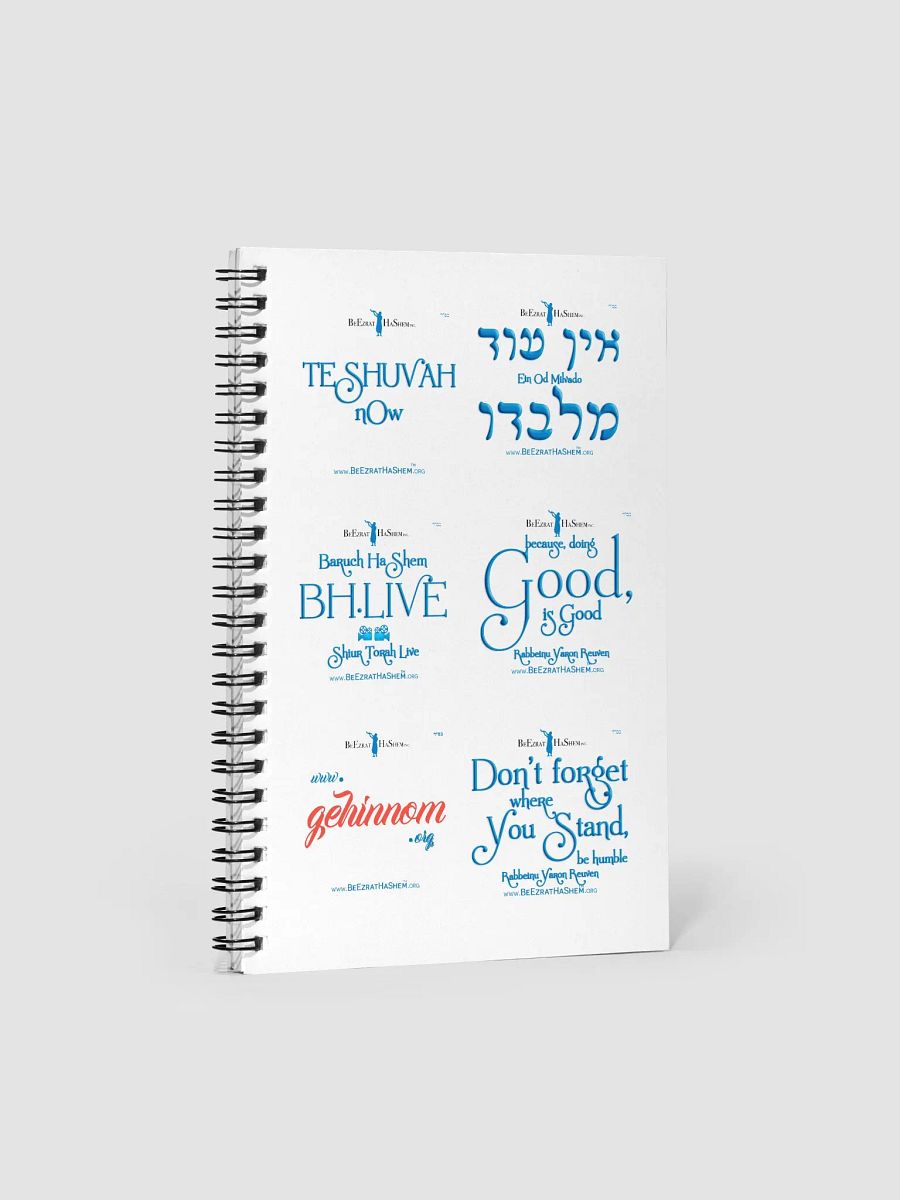 BeEzrat HaShem INC.
TESHUVAH
nOw
www.BeEzratHaShem.org
BeEzrat HaShem INC.
אין עוד
Ein Od Milvado
מלבדו
www.BeEzratHaShem.org
BeEzrat HaShem INC.
Baruch HaShem
BH.LIVE
Shiur Torah Live
www.BeEzratHaShem.org
BeEzrat HaShem INC.
because, doing
Good,
is Good
Rabbeinu Yaron Reuven
www.BeEzratHaShem.org
BeEzrat HaShem INC.
www.
gehinnom
.org
www.BeEzratHaShem.org
BeEzrat HaShem INC.
Don't forget
where
You Stand,
be humble
Rabbeinu Yaron Reuven
www.BeEzratHaShem.org